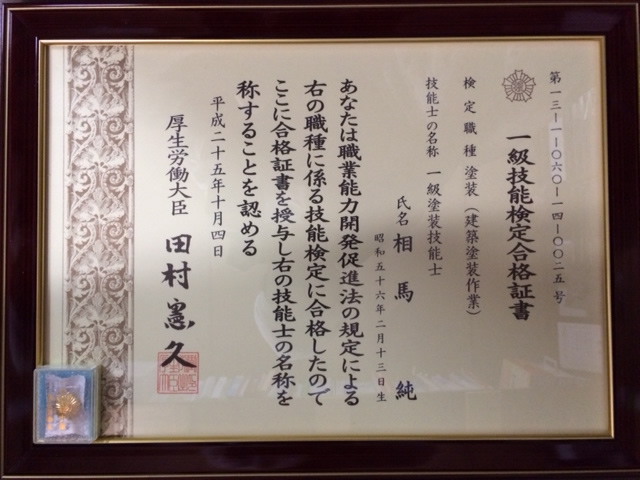 第一三ー一ー〇六〇ー一四ー〇〇二五号
一級技能検定合格証書
検定職種 塗装（建築塗装作業）
技能士の名称 一級塗装技能士
氏名 相馬 純
昭和五十六年二月十三日生
あなたは職業能力開発促進法の規定による
右の職種に係る技能検定に合格したので
ここに合格証書を授与し右の技能士の名称を
称することを認める
平成二十五年十月四日
厚生労働大臣 田村憲久